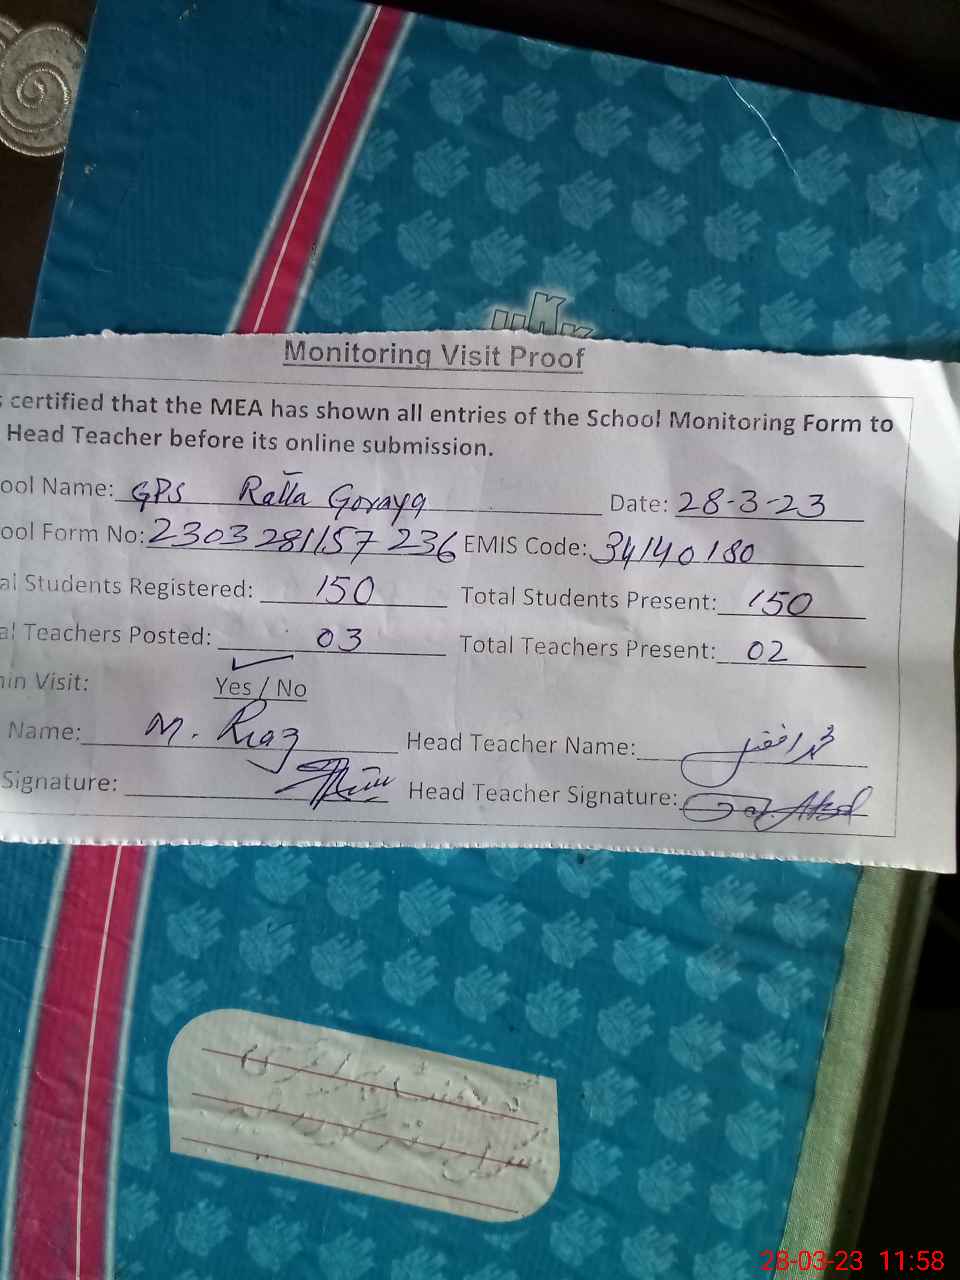 Monitoring Visit Proof
certified that the MEA has shown all entries of the School Monitoring Form to
Head Teacher before its online submission.
ool Name: GPS Ralla Goraya Date: 28-3-23
ool Form No: 2303281157236 EMIS Code: 34140180
al Students Registered: 150 Total Students Present: 150
al Teachers Posted: 03 Total Teachers Present: 02
in Visit: Yes / No
Name: M. Riaz Head Teacher Name: محمد افضل
Signature: Head Teacher Signature: Afzal
28-03-23 11:58